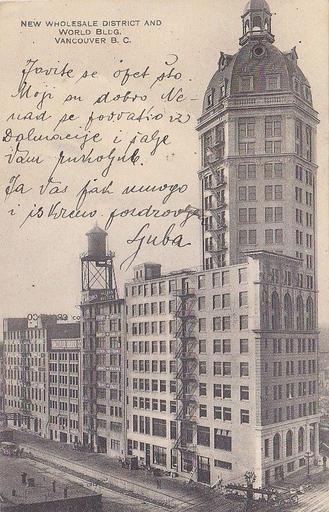 NEW WHOLESALE DISTRICT AND
WORLD BLDG.
VANCOUVER B. C.
Javite se opet što.
Moji su dobro Ne-
nad se povratio iz
Dalmacije i šalje
Vam rukoljub.
Ja Vas pak mnogo
i iskreno pozdravlja
Ljuba